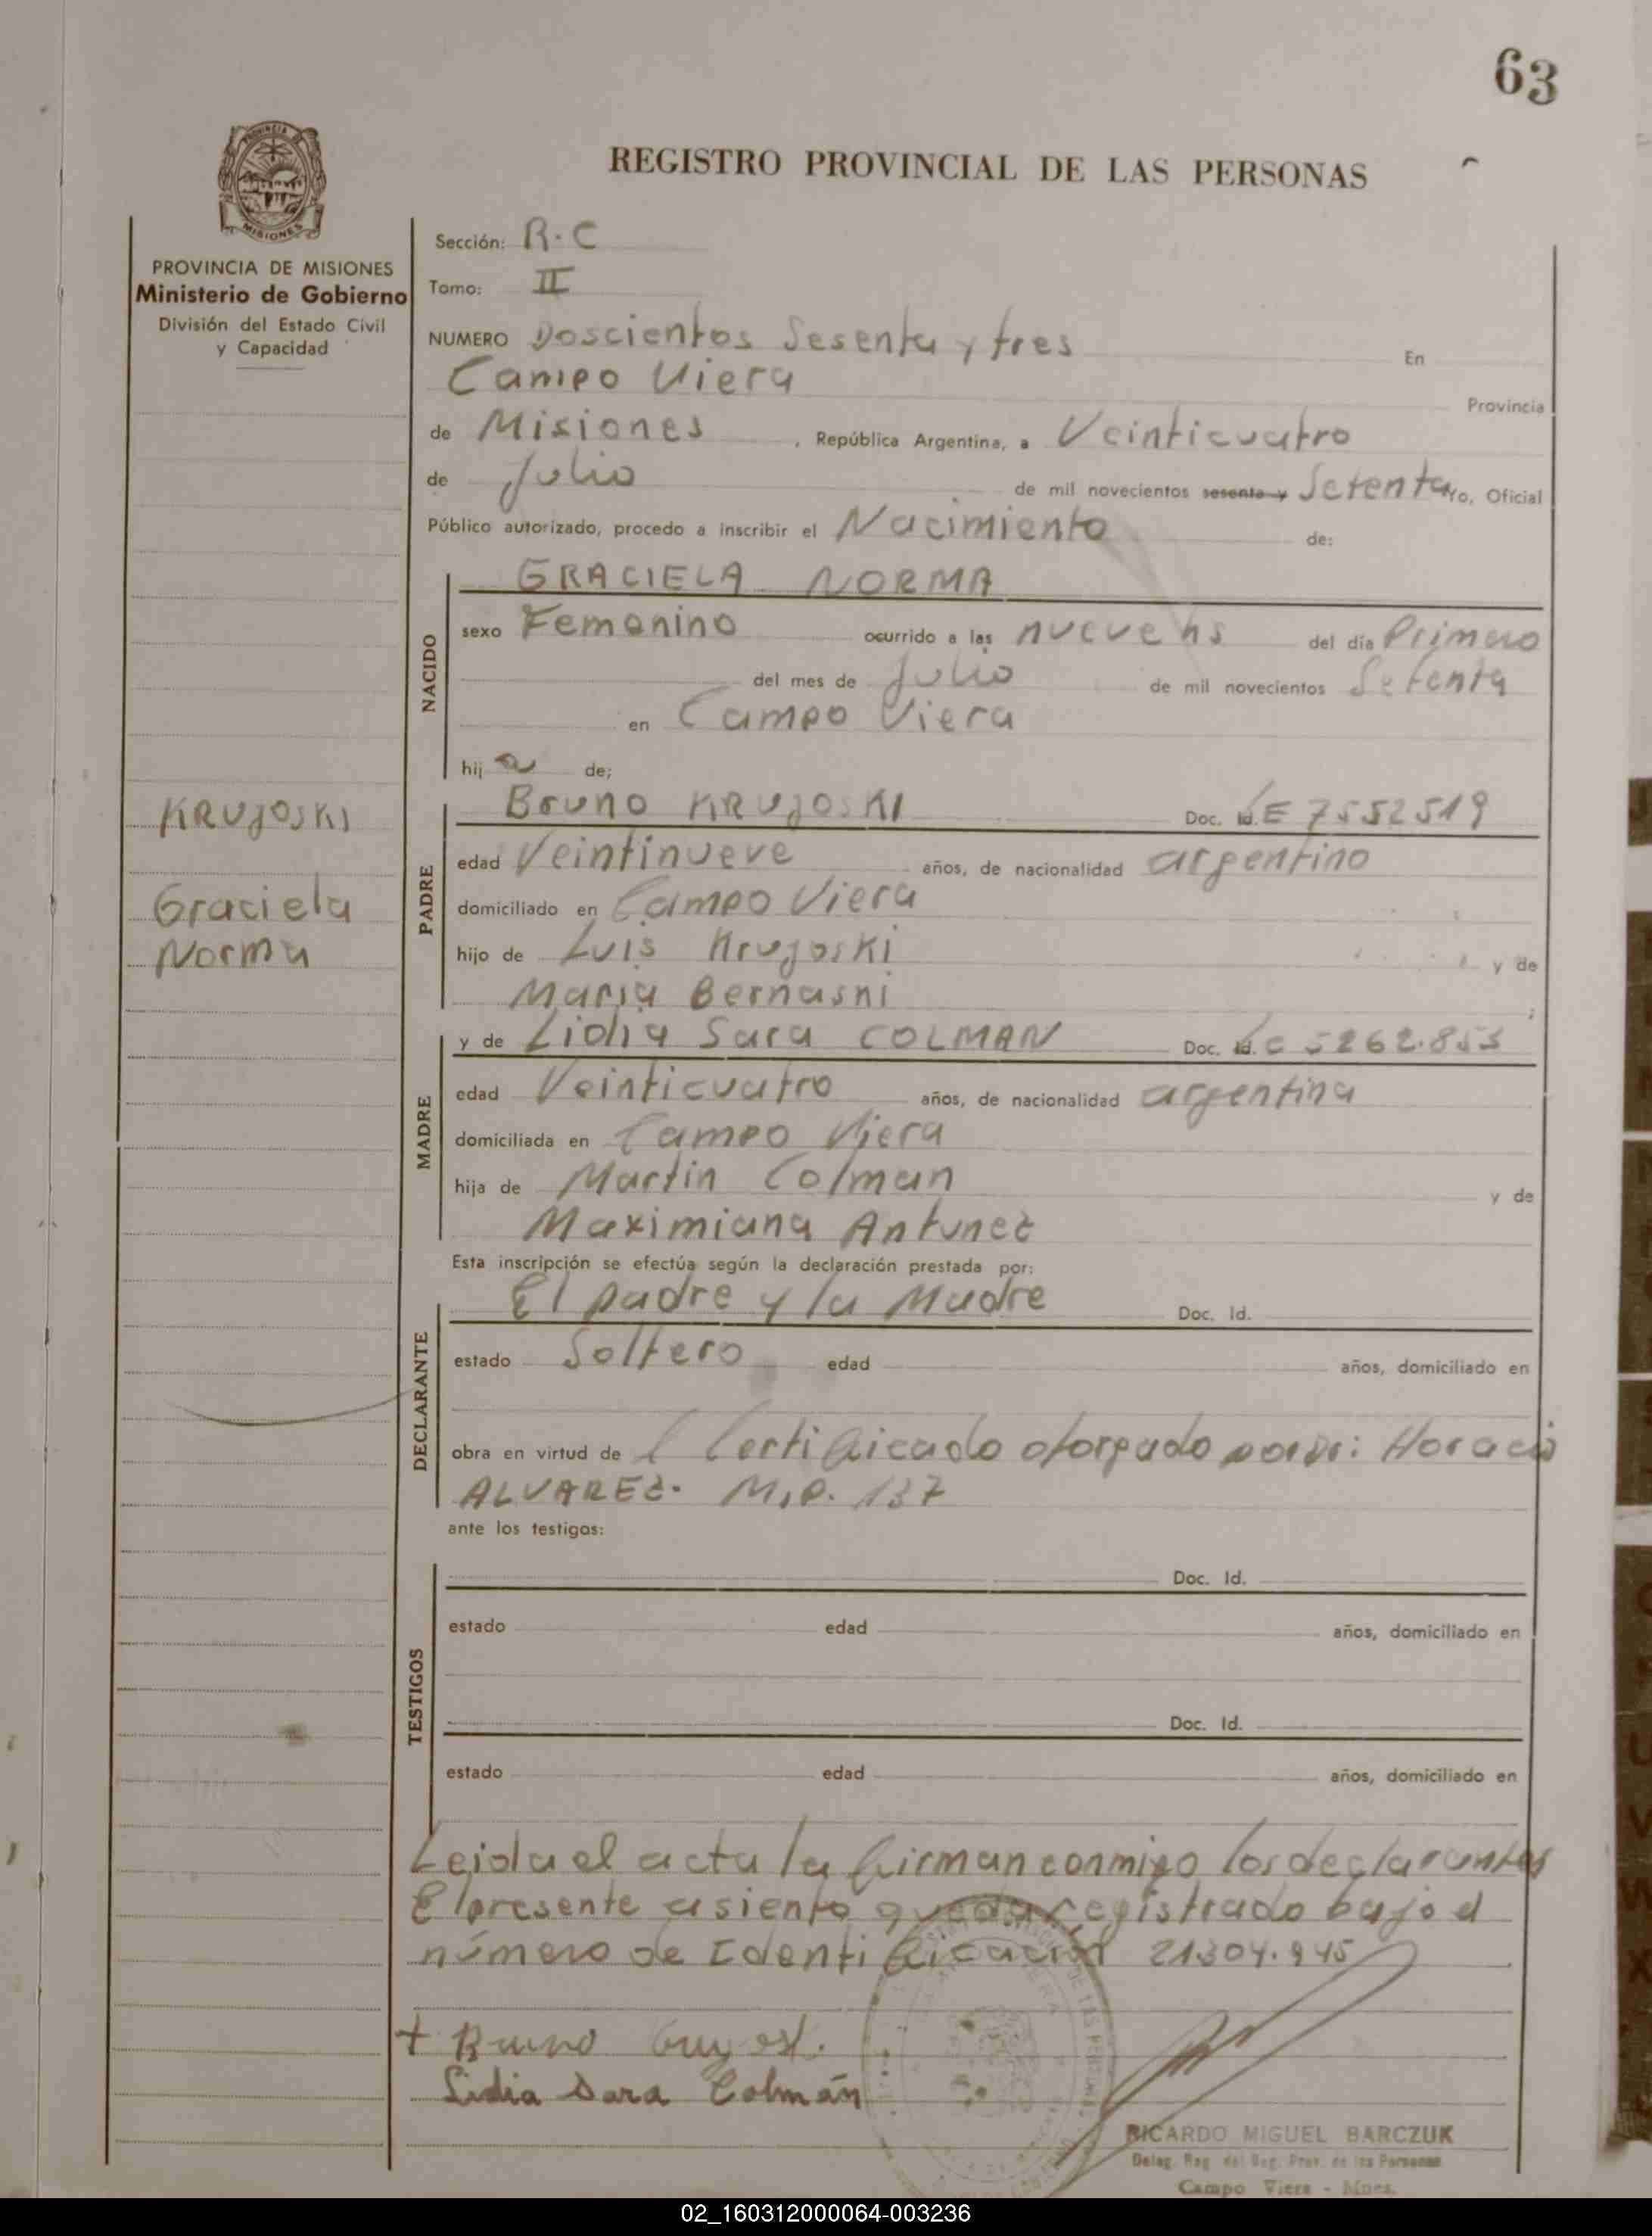 63
REGISTRO PROVINCIAL DE LAS PERSONAS
PROVINCIA DE MISIONES
Ministerio de Gobierno
División del Estado Civil
y Capacidad
Sección: R.C
Tomo: II
NUMERO Doscientos Sesenta y tres En
Campo Viera Provincia
de Misiones, República Argentina, a Veinticuatro
de Julio de mil novecientos sesenta y Setenta Yo, Oficial
Público autorizado, procedo a inscribir el Nacimiento de:
NACIDO
GRACIELA NORMA
sexo Femenino ocurrido a las nueve hs del día Primero
del mes de Julio de mil novecientos Setenta
en Campo Viera
hija de;
KRUJOSKI
Graciela
Norma
PADRE
Bruno KRUJOSKI Doc. Id. E 7552519
edad Veintinueve años, de nacionalidad argentino
domiciliado en Campo Viera
hijo de Luis Krujoski y de
Maria Bernasni
MADRE
y de Lidia Sara COLMAN Doc. Id. C 5262.853
edad Veinticuatro años, de nacionalidad argentina
domiciliada en Campo Viera
hija de Martin Colman y de
Maximiana Antunez
Esta inscripción se efectúa según la declaración prestada por:
DECLARANTE
El padre y la Madre Doc. Id.
estado Soltero edad años, domiciliado en
obra en virtud de l Certificado otorgado por Dr: Horacio
ALVAREZ. M.P. 137
ante los testigos:
TESTIGOS
Doc. Id.
estado edad años, domiciliado en
Doc. Id.
estado edad años, domiciliado en
Leida el acta la firman conmigo los declarantes
El presente asiento queda registrado bajo el
número de Identificación 21.304.945
+ Bruno
Lidia Sara Colmán
RICARDO MIGUEL BARCZUK
Deleg. Reg. del Reg. Prov. de las Personas
Campo Viera - Mnes.
02_160312000064-003236